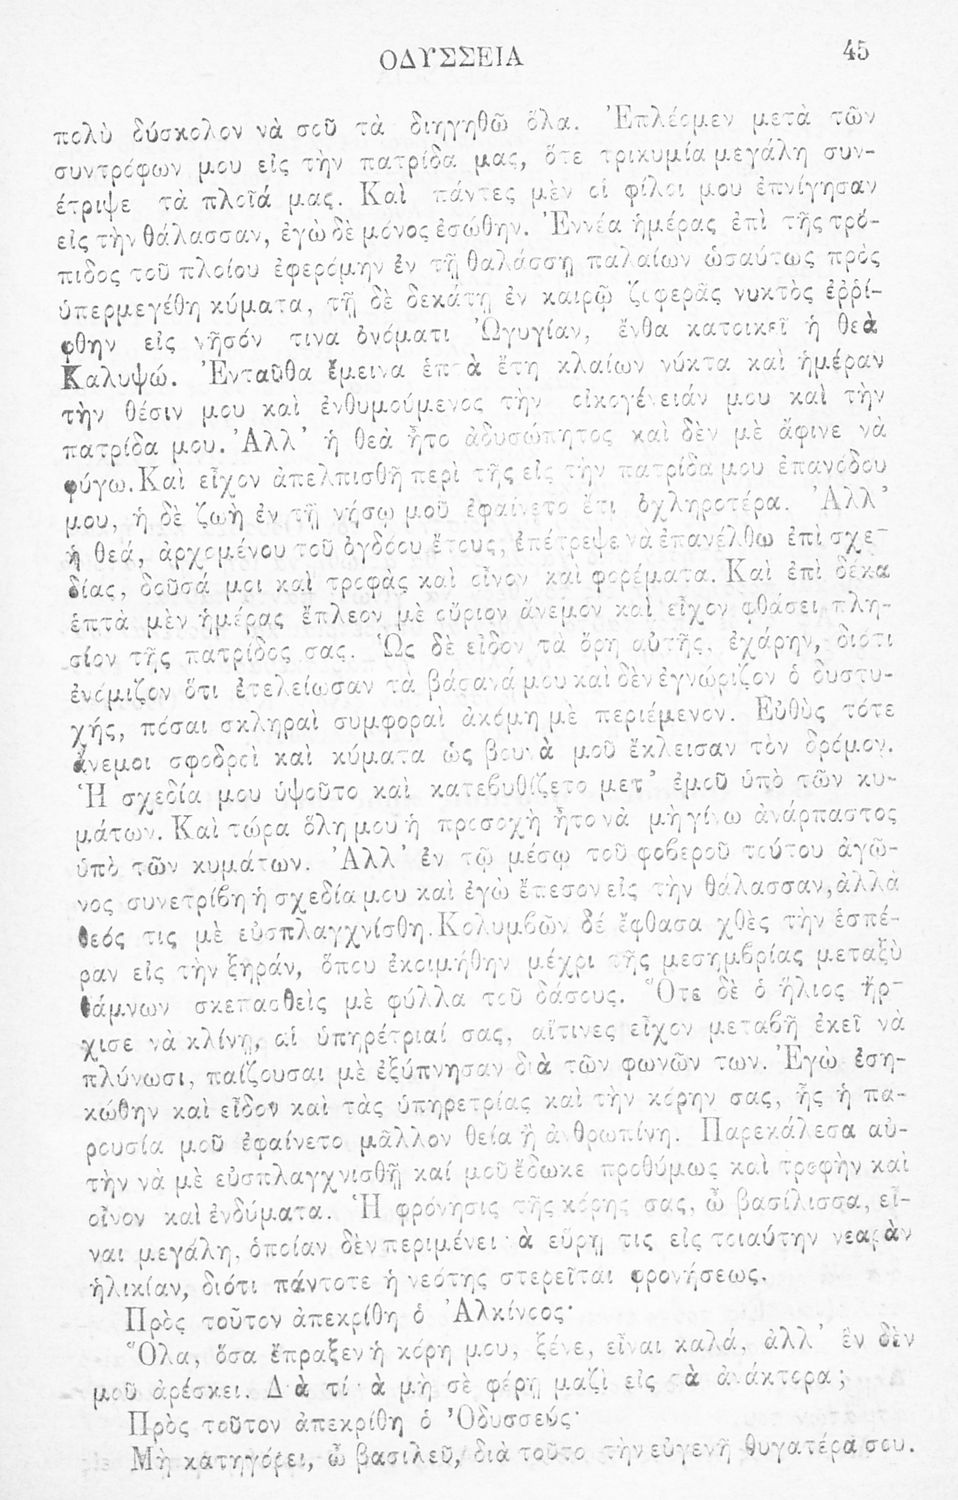 ΟΔΥΣΣΕΙΑ 45
πολὺ δύσκολον νὰ σοῦ τὰ διηγηθῶ ὅλα. Ἐπλέομεν μετὰ τῶν
συντρόφων μου εἰς τὴν πατρίδα μας, ὅτε τρικυμία μεγάλη συν-
έτριψε τὰ πλοῖά μας. Καὶ πάντες μὲν οἱ φίλοι μου ἐπνίγησαν
εἰς τὴν θάλασσαν, ἐγὼ δὲ μόνος ἐσώθην. Ἐννέα ἡμέρας ἐπὶ τῆς τρό-
πιδος τοῦ πλοίου ἐφερόμην ἐν τῇ θαλάσσῃ παλαίων ὡσαύτως πρὸς
ὑπερμεγέθη κύματα, τῇ δὲ δεκάτῃ ἐν καιρῷ ζοφερᾶς νυκτὸς ἐῤῥί-
φθην εἰς νῆσόν τινα ὀνόματι Ὠγυγίαν, ἔνθα κατοικεῖ ἡ θεὰ
Καλυψώ. Ἐνταῦθα ἔμεινα ἑπτὰ ἔτη κλαίων νύκτα καὶ ἡμέραν
τὴν θέσιν μου καὶ ἐνθυμούμενος τὴν οἰκογένειάν μου καὶ τὴν
πατρίδα μου. Ἀλλ᾽ ἡ θεὰ ἦτο ἀδυσώπητος καὶ δὲν μὲ ἄφινε νὰ
φύγω. Καὶ εἶχον ἀπελπισθῆ περὶ τῆς εἰς τὴν πατρίδα μου ἐπανόδου
μου, ἡ δὲ ζωὴ ἐν τῇ νήσῳ μοῦ ἐφαίνετο ἔτι ὀχληροτέρα. Ἀλλ᾽
ἡ θεά, ἀρχομένου τοῦ ὀγδόου ἔτους, ἐπέτρεψε νὰ ἐπανέλθω ἐπὶ σχε-
δίας, δοῦσά μοι καὶ τροφὰς καὶ οἶνον καὶ φορέματα. Καὶ ἐπὶ δέκα
ἑπτὰ μὲν ἡμέρας ἔπλεον μὲ οὔριον ἄνεμον καὶ εἶχον φθάσει πλη-
σίον τῆς πατρίδος σας. Ὡς δὲ εἶδον τὰ ὄρη αὐτῆς, ἐχάρην, διότι
ἐνόμιζον ὅτι ἐτελείωσαν τὰ βάσανά μου καὶ δὲν ἐγνώριζον ὁ δυστυ-
χής, πόσαι σκληραὶ συμφοραὶ ἀκόμη μὲ περιέμενον. Εὐθὺς τότε
ἄνεμοι σφοδροὶ καὶ κύματα ὡς βουνὰ μοῦ ἔκλεισαν τὸν δρόμον.
Ἡ σχεδία μου ὑψοῦτο καὶ κατεβυθίζετο μετ᾽ ἐμοῦ ὑπὸ τῶν κυ-
μάτων. Καὶ τώρα ὅλη μου ἡ προσοχὴ ἦτο νὰ μὴ γίνω ἀνάρπαστος
ὑπὸ τῶν κυμάτων. Ἀλλ᾽ ἐν τῷ μέσῳ τοῦ φοβεροῦ τούτου ἀγῶ-
νος συνετρίβη ἡ σχεδία μου καὶ ἐγὼ ἔπεσον εἰς τὴν θάλασσαν, ἀλλὰ
θεός τις μὲ εὐσπλαγχνίσθη. Κολυμβῶν δέ ἔφθασα χθὲς τὴν ἑσπέ-
ραν εἰς τὴν ξηράν, ὅπου ἐκοιμήθην μέχρι τῆς μεσημβρίας μεταξὺ
θάμνων σκεπασθεὶς μὲ φύλλα τοῦ δάσους. Ὅτε δὲ ὁ ἥλιος ἤρ-
χισε νὰ κλίνῃ, αἱ ὑπηρέτριαί σας, αἵτινες εἶχον μεταβῆ ἐκεῖ νὰ
πλύνωσι, παίζουσαι μὲ ἐξύπνησαν διὰ τῶν φωνῶν των. Ἐγὼ ἐση-
κώθην καὶ εἶδον καὶ τὰς ὑπηρετρίας καὶ τὴν κόρην σας, ἧς ἡ πα-
ρουσία μοῦ ἐφαίνετο μᾶλλον θεία ἢ ἀνθρωπίνη. Παρεκάλεσα αὐ-
τὴν νὰ μὲ εὐσπλαγχνισθῇ καί μοῦ ἔδωκε προθύμως καὶ τροφὴν καὶ
οἶνον καὶ ἐνδύματα. Ἡ φρόνησις τῆς κόρης σας, ὦ βασίλισσα, εἶ-
ναι μεγάλη, ὁποίαν δὲν περιμένει νὰ εὕρῃ τις εἰς τοιαύτην νεαρὰν
ἡλικίαν, διότι πάντοτε ἡ νεότης στερεῖται φρονήσεως.
Πρὸς τοῦτον ἀπεκρίθη ὁ Ἀλκίνοος·
Ὅλα, ὅσα ἔπραξεν ἡ κόρη μου, ξένε, εἶναι καλά, ἀλλ᾽ ἓν δὲν
μοῦ ἀρέσκει. Διὰ τί νὰ μὴ σὲ φέρῃ μαζὶ εἰς τὰ ἀνάκτορα;
Πρὸς τοῦτον ἀπεκρίθη ὁ Ὀδυσσεύς·
Μὴ κατηγόρει, ὦ βασιλεῦ, διὰ τοῦτο τὴν εὐγενῆ θυγατέρα σου.